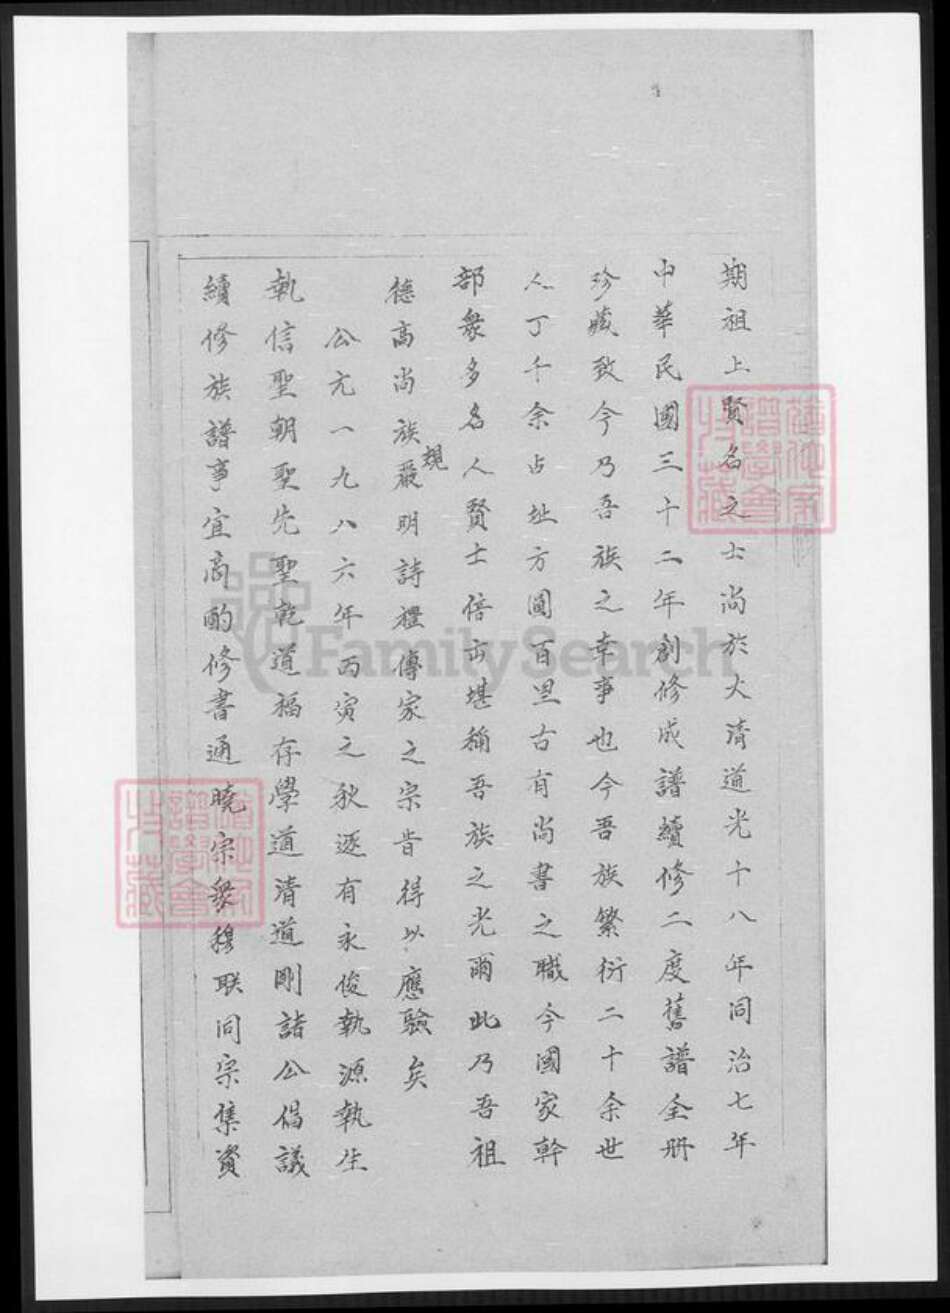 期祖上賢名之士尚於大清道光十八年同治七年
中華民國三十二年創修成譜續修二度舊譜全冊
珍藏致今乃吾族之幸事也今吾族繁衍二十余世
人丁千余占址方圓百里古有尚書之職今國家幹
部衆多名人賢士倍出堪稱吾族之光爾此乃吾祖
德高尚族規嚴明詩禮傳家之宗旨得以應驗矣
公元一九八六年丙寅之秋遂有永俊執源執生
執信聖朝聖先聖乾道福存學道清道剛諸公倡議
續修族譜事宜商酌修書通曉宗衆穆联同宗集資
FamilySearch